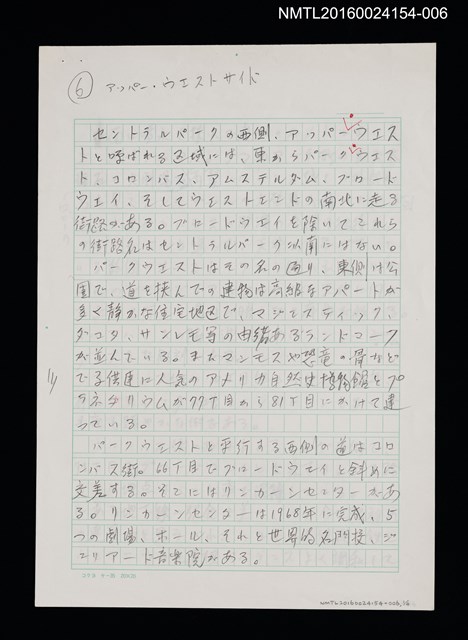 NMTL20160024154-006
⑥ アッパー・ウエストサイド
セントラルパークの西側、アッパーウエス
トと呼ばれる区域には、東からパークウエス
ト、コロンバス、アムステルダム、ブロード
ウェイ、そしてウエストエンドの南北に走る
街路がある。ブロードウェイを除いてこれら
の街路名はセントラルパーク以南にはない。
パークウエストはその名の通り、東側は公
園で、道を挟んでの建物は高級なアパートが
多く静かな住宅地区で、マジェスティック、
ダコタ、サンレモ等の由緒あるランドマーク
が並んでいる。またマンモスや恐竜の骨など
で子供達に人気のアメリカ自然史博物館とプ
ラネタリウムが77丁目から81丁目にかけて建
っている。
パークウエストと平行する西側の道はコロ
ンバス街。66丁目でブロードウェイと斜めに
交差する。そこにはリンカーンセンターがあ
る。リンカーンセンターは1968年に完成、5
つの劇場、ホール、それと世界的名門校、ジ
ュリアード音楽院がある。
NMTL20160024154-006,16